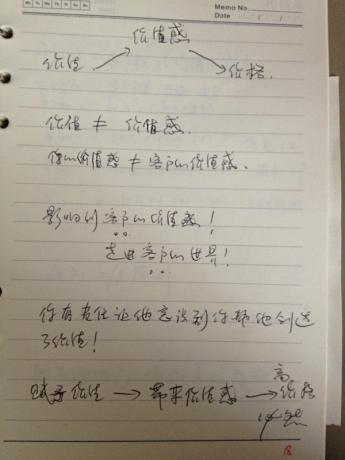 Memo No.
Date / /
价值感
价值 价格
价值 ≠ 价值感.
你的价值感 ≠ 客户的价值感.
影响的客户的价值感!
走进客户的世界!
你有责任让他意识到你帮他创造
了价值!
高
赋予价值 → 带来价值感 → 价格
18